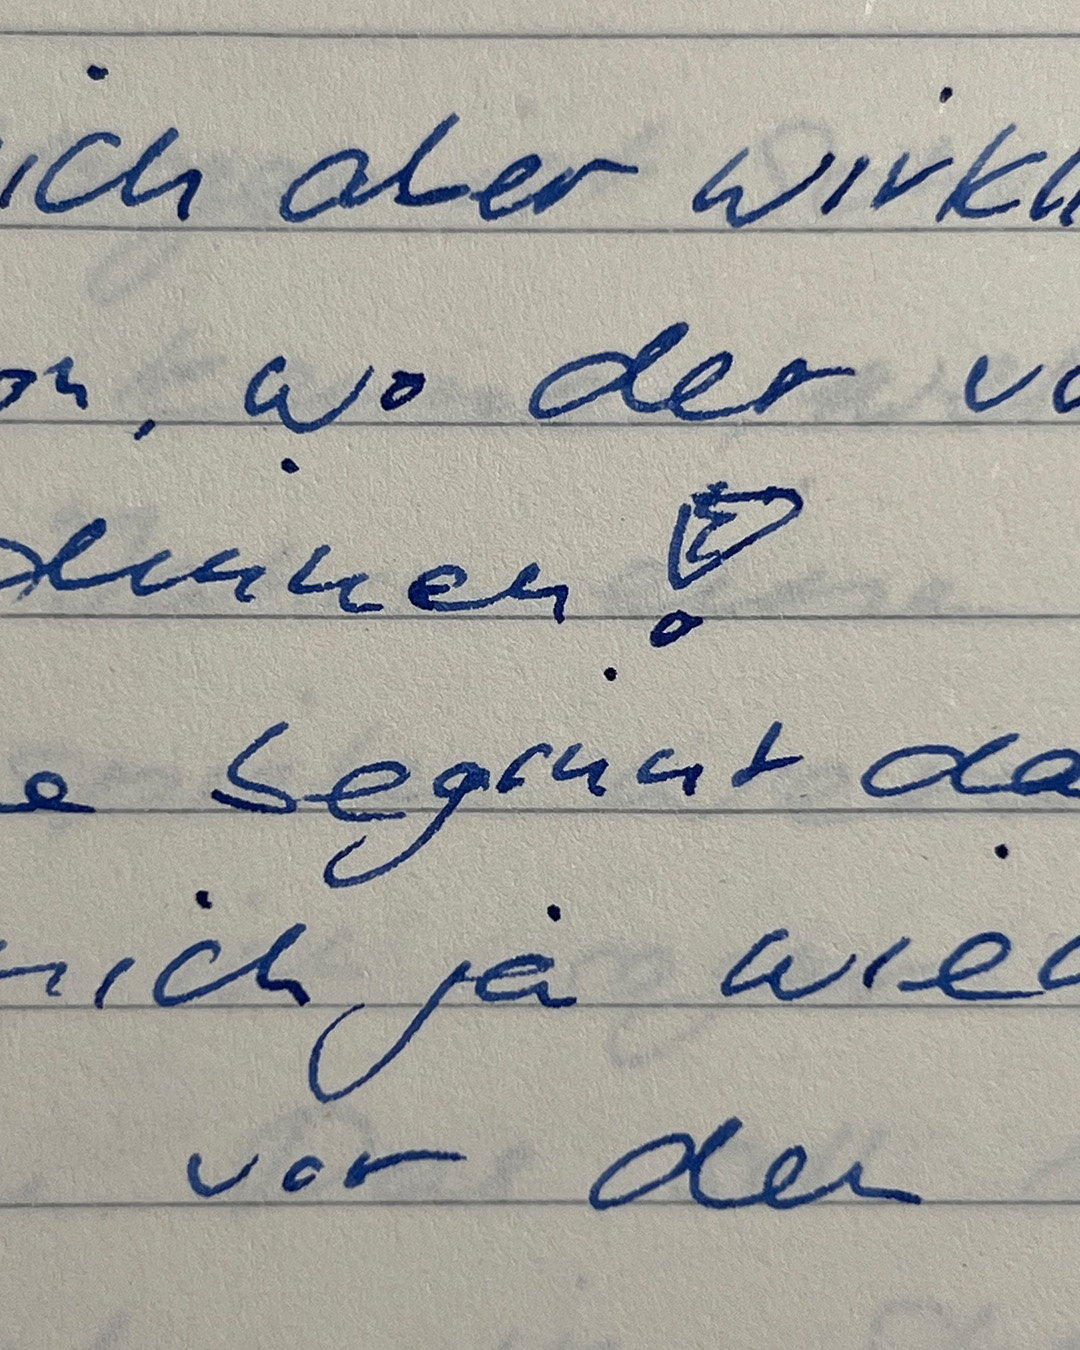 ich aber wirkli
on, wo der vo
!
e beginnt da
mich ja wied
vor den